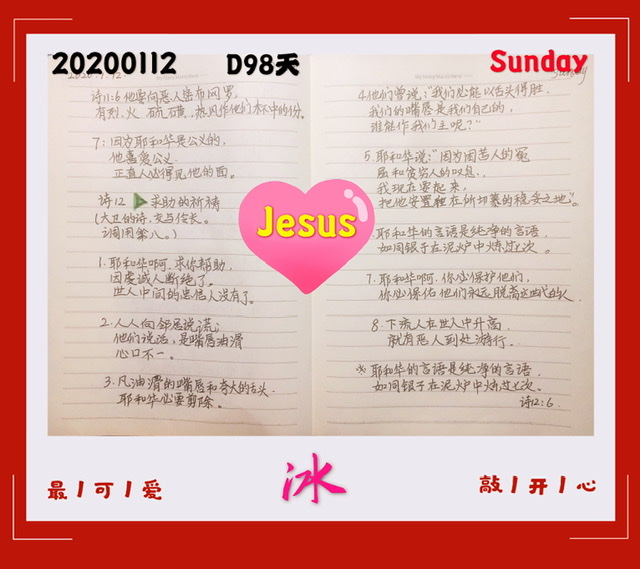 20200112 D98天 Sunday
2020.1.12.
诗11:6 他要向恶人密布网罗,
有烈火、硫磺、热风作他们杯中的份。
7:因为耶和华是公义的,
他喜爱公义
正直人必得见他的面。
诗12 求助的祈祷
(大卫的诗,交与伶长。
调用第八。)
1. 耶和华啊,求你帮助,
因虔诚人断绝了。
世人中间的忠信人没有了。
2. 人人向邻舍说谎;
他们说话,是嘴唇油滑
心口不一。
3. 凡油滑的嘴唇和夸大的舌头
耶和华必要剪除。
Sunday
4. 他们曾说:“我们必能以舌头得胜,
我们的嘴唇是我们自己的,
谁能作我们主呢?”
5. 耶和华说:“因为困苦人的冤
屈和贫穷人的叹息,
我现在要起来,
把他安置在所切慕的稳妥之地”。
耶和华的言语是纯净的言语
如同银子在泥炉中炼过七次。
7. 耶和华啊,你必保护他们,
你必保佑他们永远脱离这世代的人
8. 下流人在世人中升高,
就有恶人到处游行。
耶和华的言语是纯净的言语
如同银子在泥炉中炼过七次。
诗12:6.
Jesus
最|可|爱
冰
敲|开|心